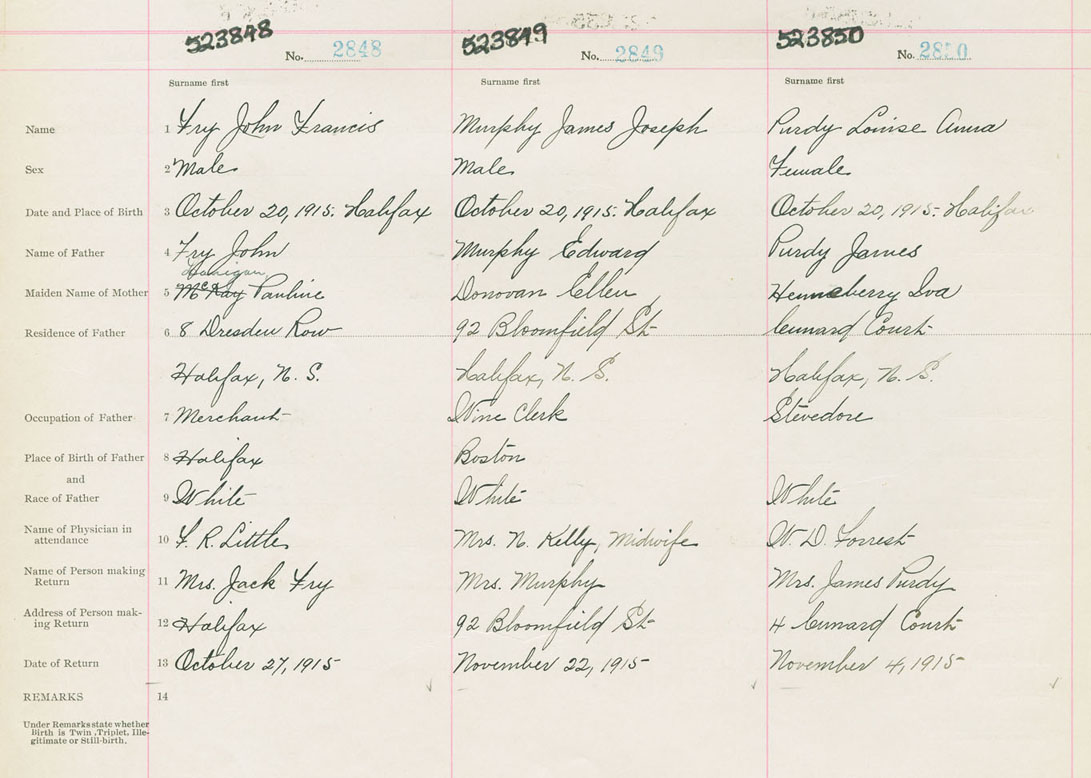 523848 523849 523850
No. 2848 No. 2849 No. 2850
Surname first Surname first Surname first
Name 1 Fry John Francis Murphy James Joseph Purdy Louise Anna
Sex 2 Male Male Female
Date and Place of Birth 3 October 20, 1915. Halifax October 20, 1915. Halifax October 20, 1915. Halifax
Name of Father 4 Fry John Murphy Edward Purdy James
Maiden Name of Mother 5 McKay Pauline Donovan Ellen Henneberry Iva
Residence of Father 6 8 Dresden Row 92 Bloomfield St Cunard Court
Halifax, N. S. Halifax, N. S. Halifax, N. S.
Occupation of Father 7 Merchant Wine Clerk Stevedore
Place of Birth of Father 8 Halifax Boston
and
Race of Father 9 White White White
Name of Physician in
attendance 10 F. R. Little Mrs. N. Kelly, Midwife W. D. Forrest
Name of Person making
Return 11 Mrs. Jack Fry Mrs. Murphy Mrs. James Purdy
Address of Person mak-
ing Return 12 Halifax 92 Bloomfield St 4 Cunard Court
Date of Return 13 October 27, 1915 November 22, 1915 November 4, 1915
REMARKS 14
Under Remarks state whether
Birth is Twin, Triplet, Ille-
gitimate or Still-birth.